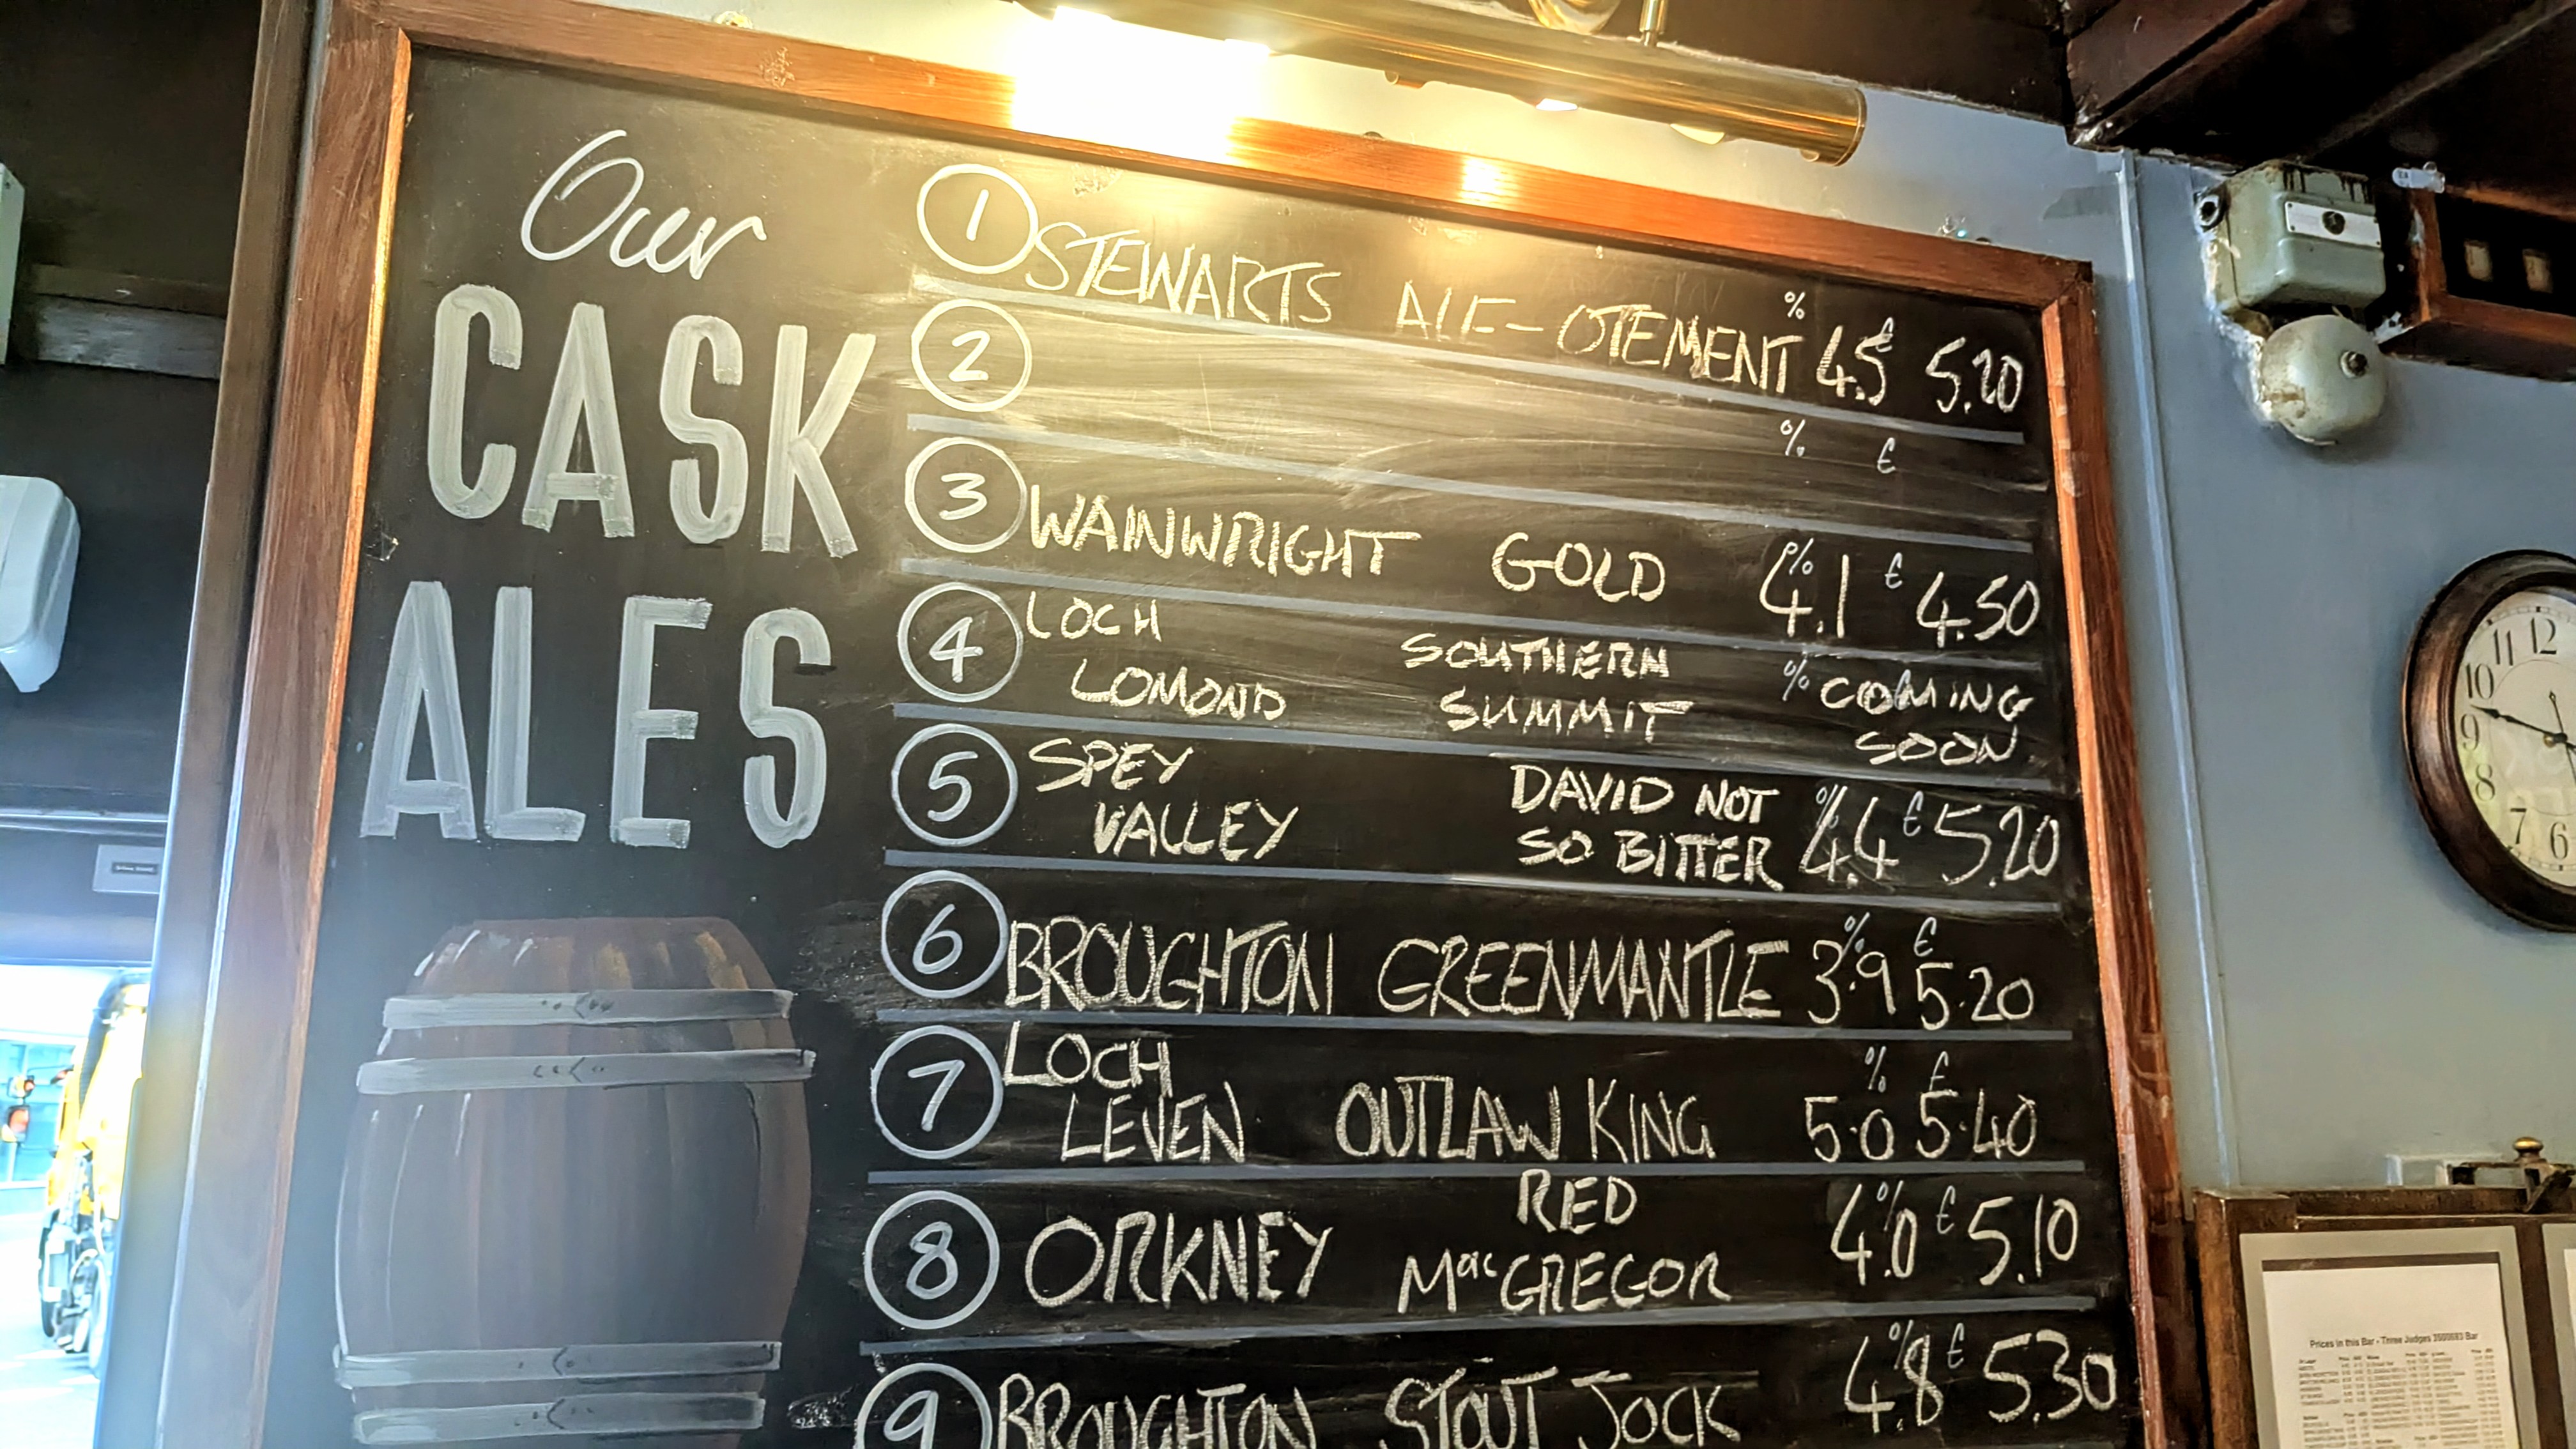 Our
CASK
ALES
1 STEWARTS ALE-OTEMENT % 4.5 £ 5.20
2 % £
3 WAINWRIGHT GOLD % 4.1 £ 4.50
4 LOCH LOMOND SOUTHERN SUMMIT % COMING SOON
5 SPEY VALLEY DAVID NOT SO BITTER % 4.4 £ 5.20
6 BROUGHTON GREENMANTLE % 3.9 £ 5.20
7 LOCH LEVEN OUTLAW KING % 5.0 £ 5.40
8 ORKNEY RED MacGREGOR % 4.0 £ 5.10
9 BROUGHTON STOUT JOCK % 4.8 £ 5.30
11 12
10
9
8
7 6
Prices in this Bar - Three Judges 3500693 Bar